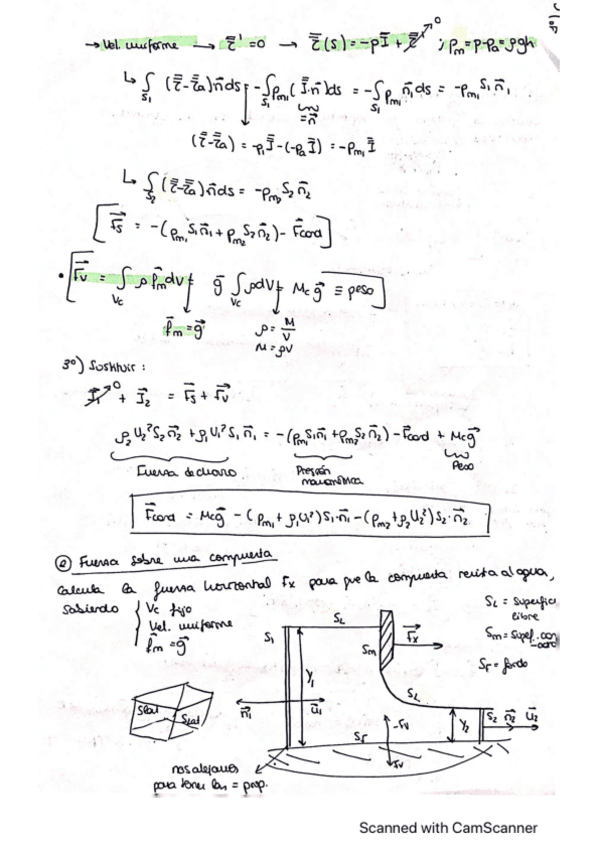 → Vel. uniforme → τ̿' = 0 → τ̿(s) = -pI̿ + τ̿'↗0 ; pm = p-pa = ρgh
↳ ∫S1 (τ̿-τ̿a)n⃗ ds = -∫S1 pm1 (I̿·n⃗)ds = -∫S1 pm1 n⃗1 ds = -pm1 S1 n⃗1
= n⃗
(τ̿-τ̿a) = -p1 I̿ - (-pa I̿) = -pm1 I̿
↳ ∫S2 (τ̿-τ̿a)n⃗ ds = -pm2 S2 n⃗2
[F⃗s = -(pm1 S1 n⃗1 + pm2 S2 n⃗2) - F⃗cod]
• [F⃗v = ∫Vc ρ f⃗m dV = g⃗ ∫Vc ρ dV = Mc g⃗ ≡ peso]
f⃗m = g⃗
ρ = M/V
M = ρV
3º) Sustituir :
I⃗1↗0 + I⃗2 = F⃗s + F⃗v
ρ2 U2² S2 n⃗2 + ρ1 U1² S1 n⃗1 = -(pm1 S1 n⃗1 + pm2 S2 n⃗2) - F⃗cod + Mc g⃗
Fuerza de chorro
Presión
manométrica
Peso
F⃗cod = Mc g⃗ - (pm1 + ρ1 U1²) S1·n⃗1 - (pm2 + ρ2 U2²) S2·n⃗2
② Fuerza sobre una compuerta
Calcula la fuerza horizontal Fx para que la compuerta resista al agua,
Sabiendo { Vc fijo
Vel. uniforme
f⃗m = g⃗
SL = Superficie
libre
Sm = Supf. con
SF = fondo
SL
S1
Sm
F⃗x
Y1
SL
n⃗1
U⃗1
Y2
S2 n⃗2 U⃗2
SF
Slat
Slat
nos alejamos
para tener las = prop.
Scanned with CamScanner